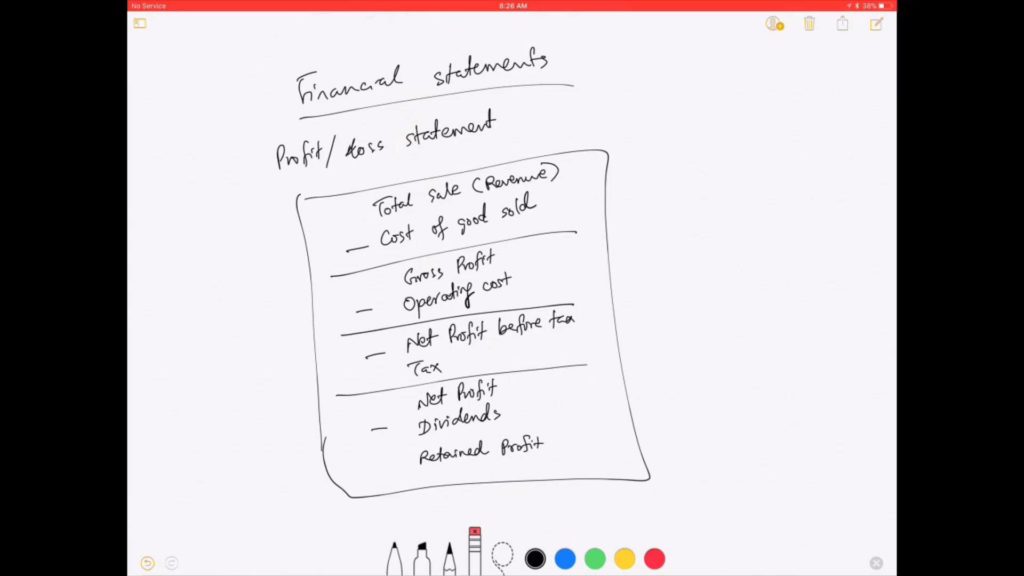 No Service 8:26 AM 38%
Financial statements
Profit/Loss statement
Total sale (Revenue)
— Cost of good sold
Gross Profit
— Operating cost
Net Profit before tax
— Tax
Net Profit
— Dividends
Retained Profit